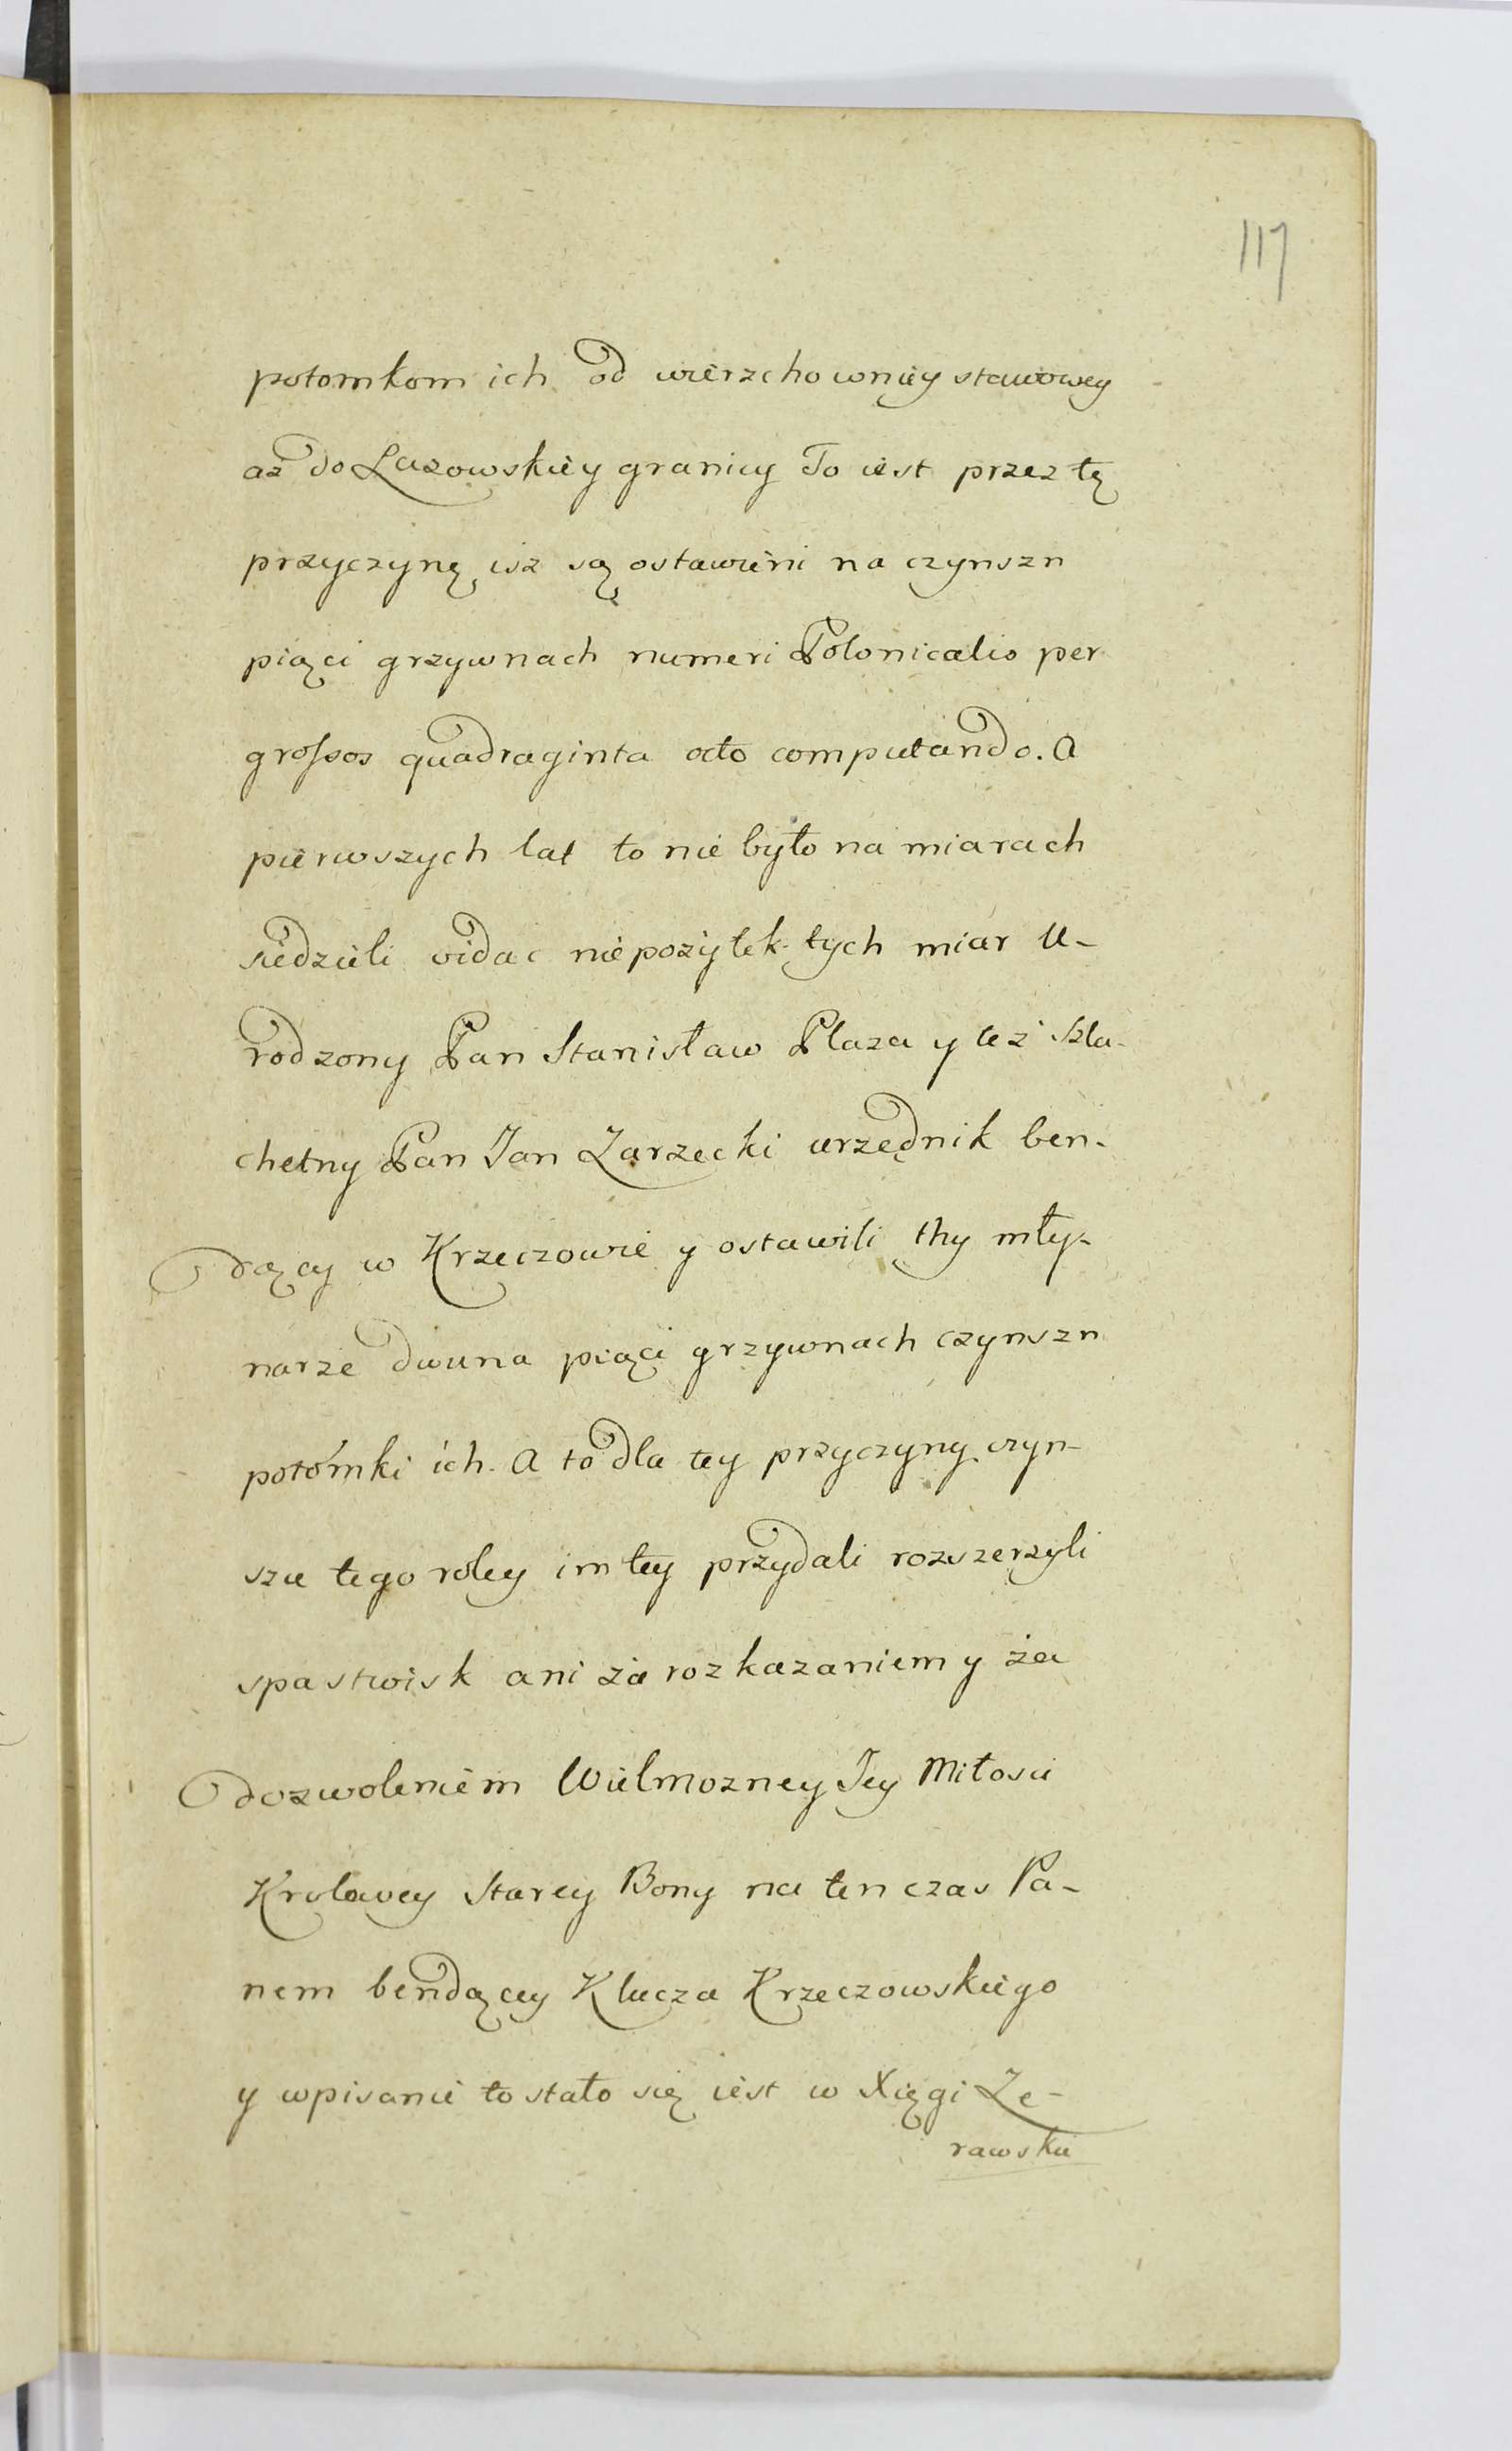 117
potomkom ich od wierzchowniey stawowey
az do Lazowskiey granicy To iest przez tę
przyczynę isz są ostawieni na czynszn
piąci grzywnach numeri Polonicalis per
grossos quadraginta octo computando. A
pierwszych lat to nie było na miarach
siedzieli vidac niepozytek tych miar U-
rodzony Pan Stanisław Plaza y tez Szla-
chetny Pan Jan Zarzecki urzędnik ben-
dący w Krzeczowie y ostawili thy mły-
narze dwuna piąci grzywnach czynszn
potómki ich. A to dla tey przyczyny czyn-
szu tego roley im tey przydali rozszerzyli
spastwisk ani za rozkazaniem y za
dozwoleniem Wielmozney Jey Miłosci
Krolowey Starey Bony na ten czas Pa-
nem bendącey Klucza Krzeczowskiego
y wpisanie to stało się iest w Xięgi Ze-
rawskie